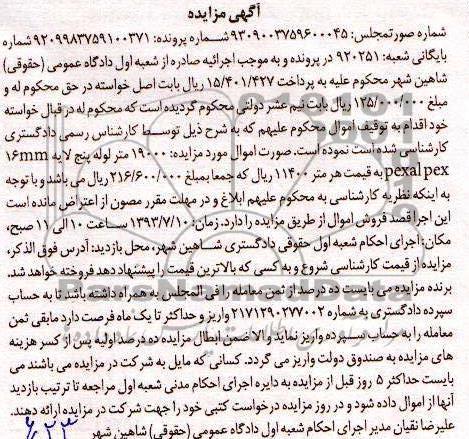 آگهی مزایده
شماره صورتمجلس: ۹۳۰۹۰۰۳۷۵۹۶۰۰۰۴۵ شماره پرونده: ۹۲۰۹۹۸۳۷۵۹۱۰۰۳۷۱ شماره
بایگانی شعبه: ۹۲۰۲۵۱ در پرونده و به موجب اجرائیه صادره از شعبه اول دادگاه عمومی (حقوقی)
شاهین شهر محکوم علیه به پرداخت ۱۵/۴۰۱/۴۲۷ ریال بابت اصل خواسته در حق محکوم له و
مبلغ ۱۳۵/۰۰۰/۰۰۰ ریال بابت نیم عشر دولتی محکوم گردیده است که محکوم له در قبال خواسته
خود اقدام به توقیف اموال محکوم علیهم که به شرح ذیل توسط کارشناس رسمی دادگستری
کارشناسی شده است نموده است. صورت اموال مورد مزایده: ۱۹۰۰۰ متر لوله پنج لایه ۱۶mm
pexal pex به قیمت هر متر ۱۱۴۰۰ ریال که جمعا بمبلغ ۲۱۶/۶۰۰/۰۰۰ ریال می باشد و با توجه
به اینکه نظریه کارشناسی به محکوم علیهم ابلاغ و در مهلت مقرر مصون از اعتراض مانده است
این اجرا قصد فروش اموال از طریق مزایده را دارد. زمان: ۱۳۹۳/۷/۱۰ ساعت ۱۰ الی ۱۱ صبح،
مکان: اجرای احکام شعبه اول حقوقی دادگستری شاهین شهر، محل بازدید: آدرس فوق الذکر،
مزایده از قیمت کارشناسی شروع و به کسی که بالاترین قیمت را پیشنهاد دهد فروخته خواهد شد.
برنده مزایده می بایست ده درصد از ثمن معامله را فی المجلس به همراه داشته باشد تا به حساب
سپرده دادگستری به شماره ۲۱۷۱۲۹۰۲۷۷۰۰۲ واریز و حداکثر تا یک ماه فرصت دارد مابقی ثمن
معامله را به حساب سپرده واریز نماید والا ضمن ابطال مزایده ده درصد اولیه پس از کسر هزینه
های مزایده به صندوق دولت واریز می گردد. کسانی که مایل به شرکت در مزایده می باشند می
بایست حداکثر ۵ روز قبل از مزایده به دایره اجرای احکام مدنی شعبه اول مراجعه تا ترتیب بازدید
آنها از اموال داده شود و در روز مزایده درخواست کتبی خود را جهت شرکت در مزایده ارائه دهند.
علیرضا نقیان مدیر اجرای احکام شعبه اول دادگاه عمومی (حقوقی) شاهین شهر